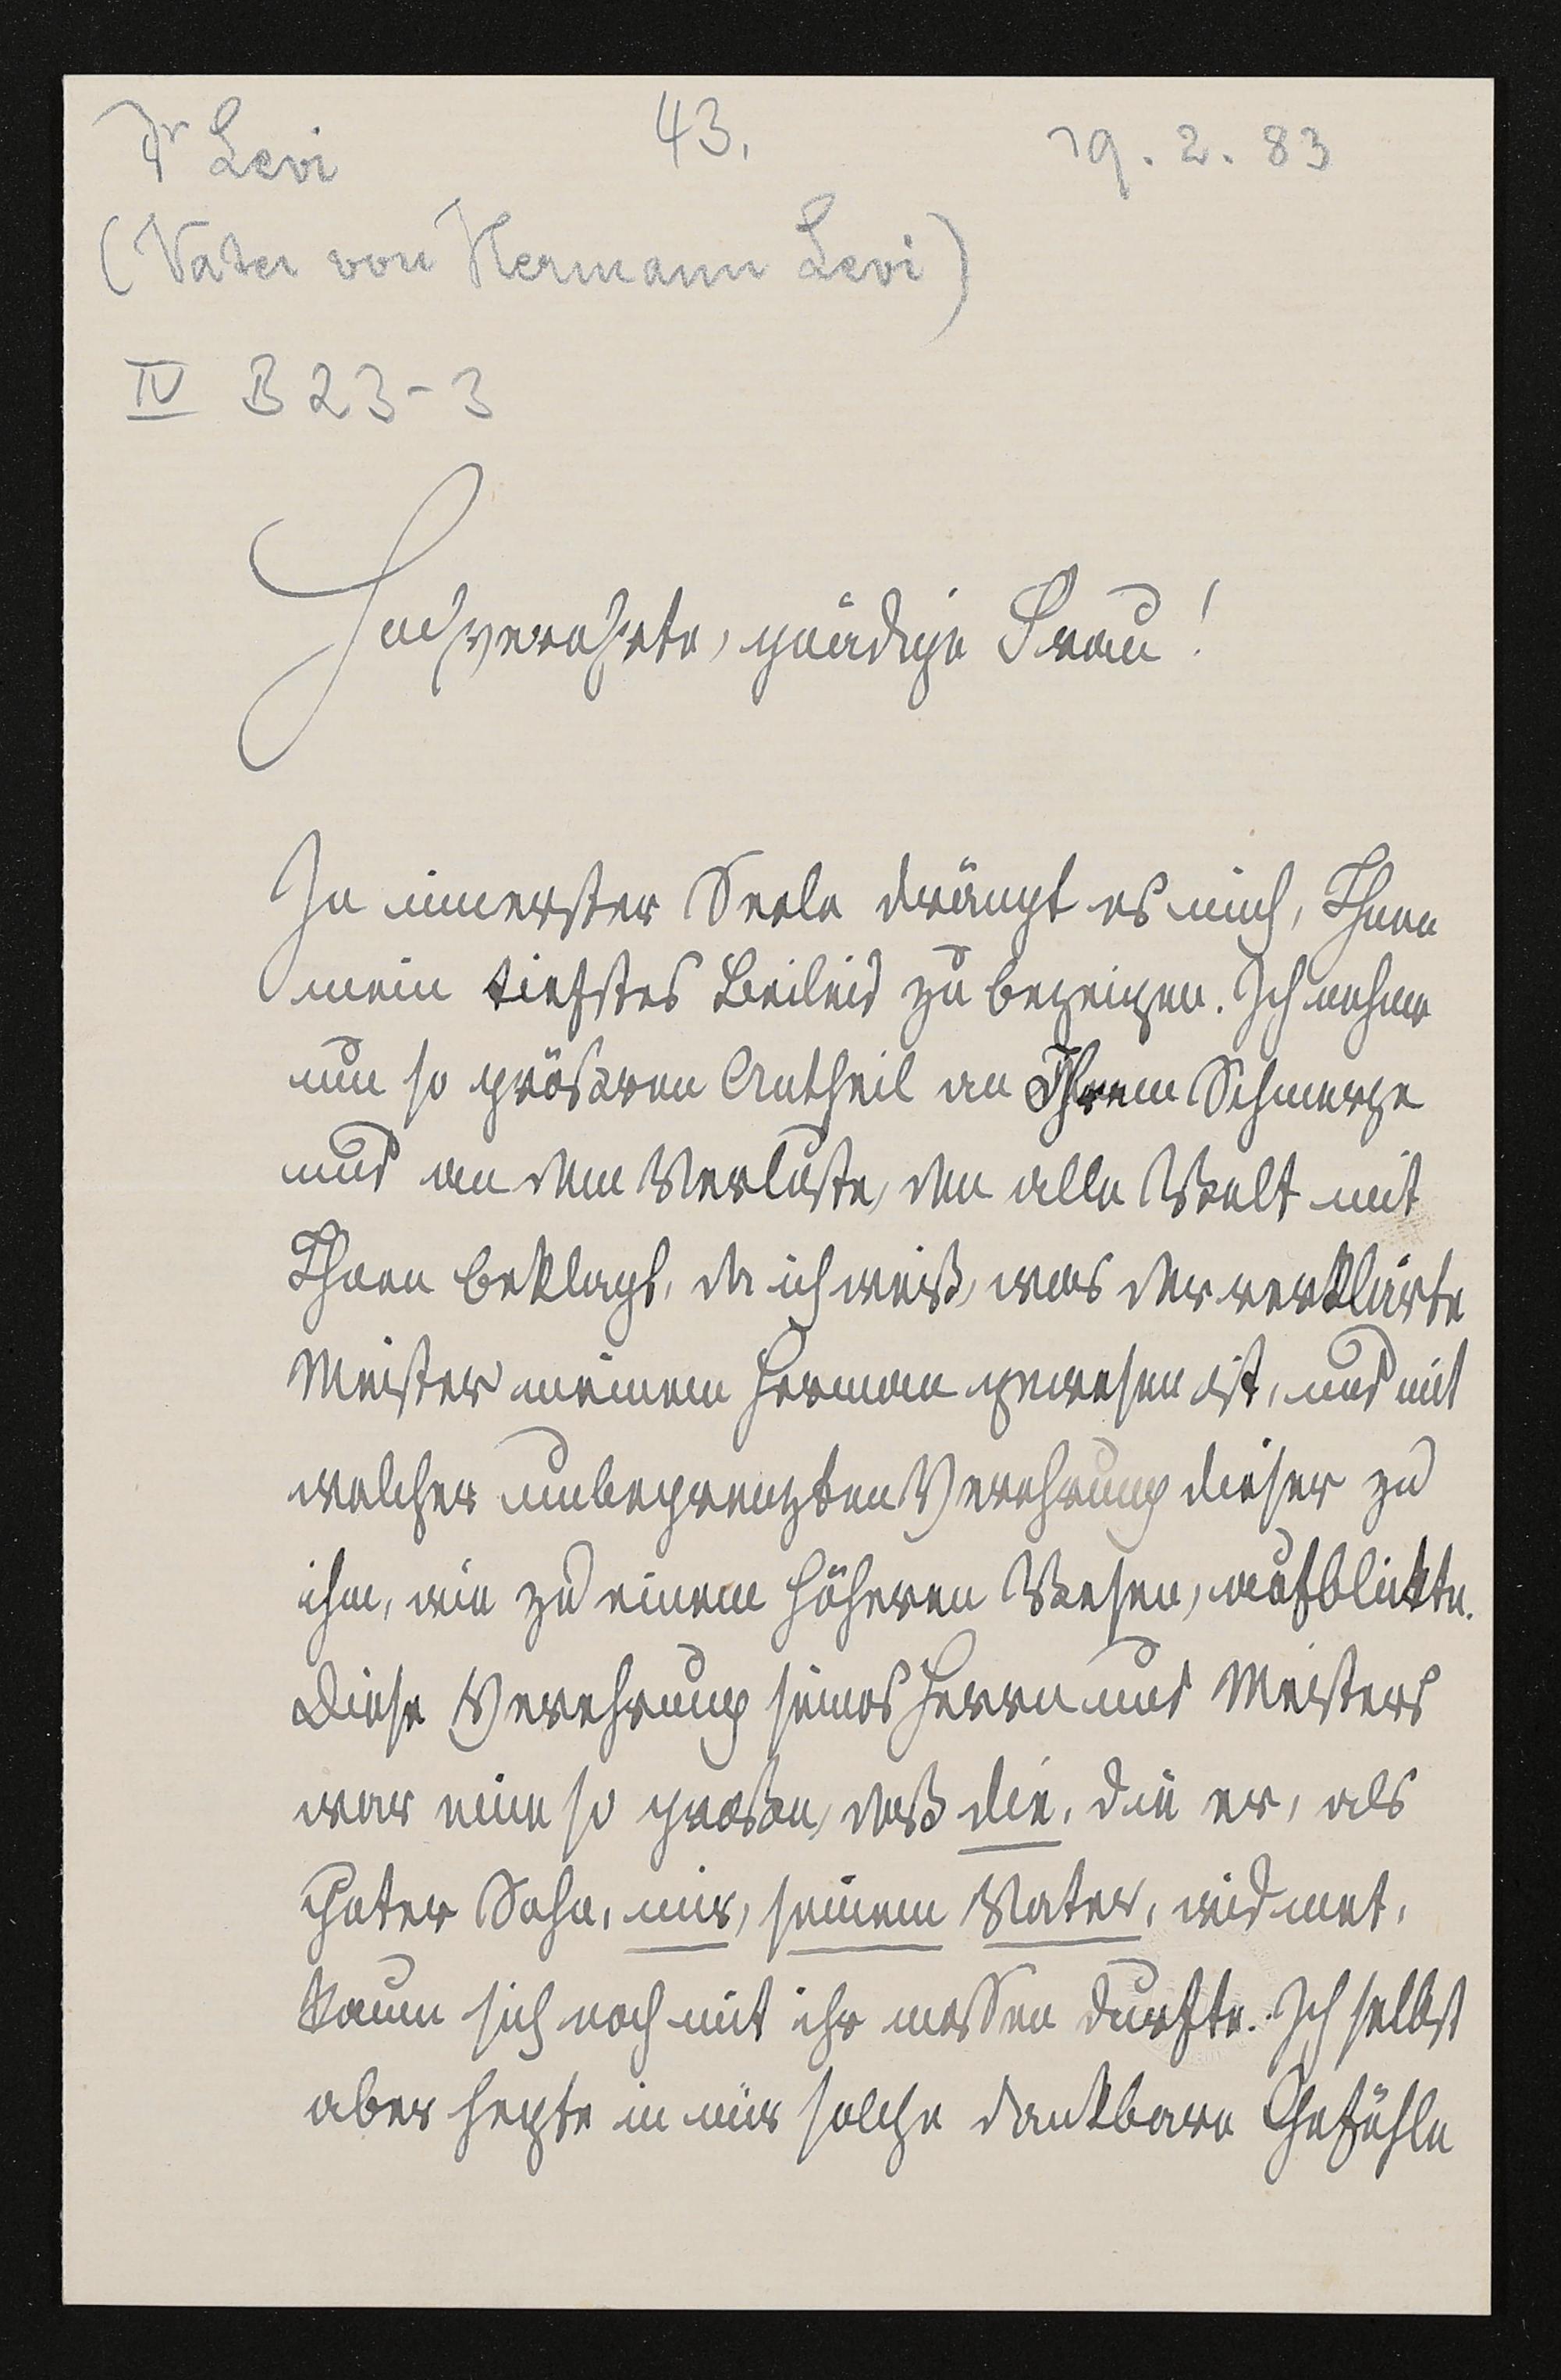 Dr Levi 43. 19. 2. 83
(Vater von Hermann Levi)
IV B 23-3
Hochverehrte, gnädige Frau!
In innerster Seele drängt es mich, Ihnen
mein tiefstes Beileid zu bezeigen. Ich nehme
um so größeren Antheil an Ihrem Schmerze
und an dem Verluste, den alle Welt mit
Ihnen beklagt, da ich weiß, was der verklärte
Meister meinem Herman gewesen ist, und mit
welcher unbegrenzten Verehrung dieser zu
ihm, wie zu einem höheren Wesen, aufblickte.
Diese Verehrung seines Herrn und Meisters
war eine so große, daß die, die er, als
guter Sohn, mir, seinem Vater, widmet,
kaum sich noch mit ihr messen durfte. Ich selbst
aber hegte in mir solche dankbare Gefühle